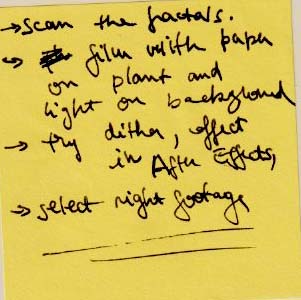 → scan the fractals.
→ film with paper
on plant and
light on background
→ try dither, effect
in After Effects,
→ select right footage